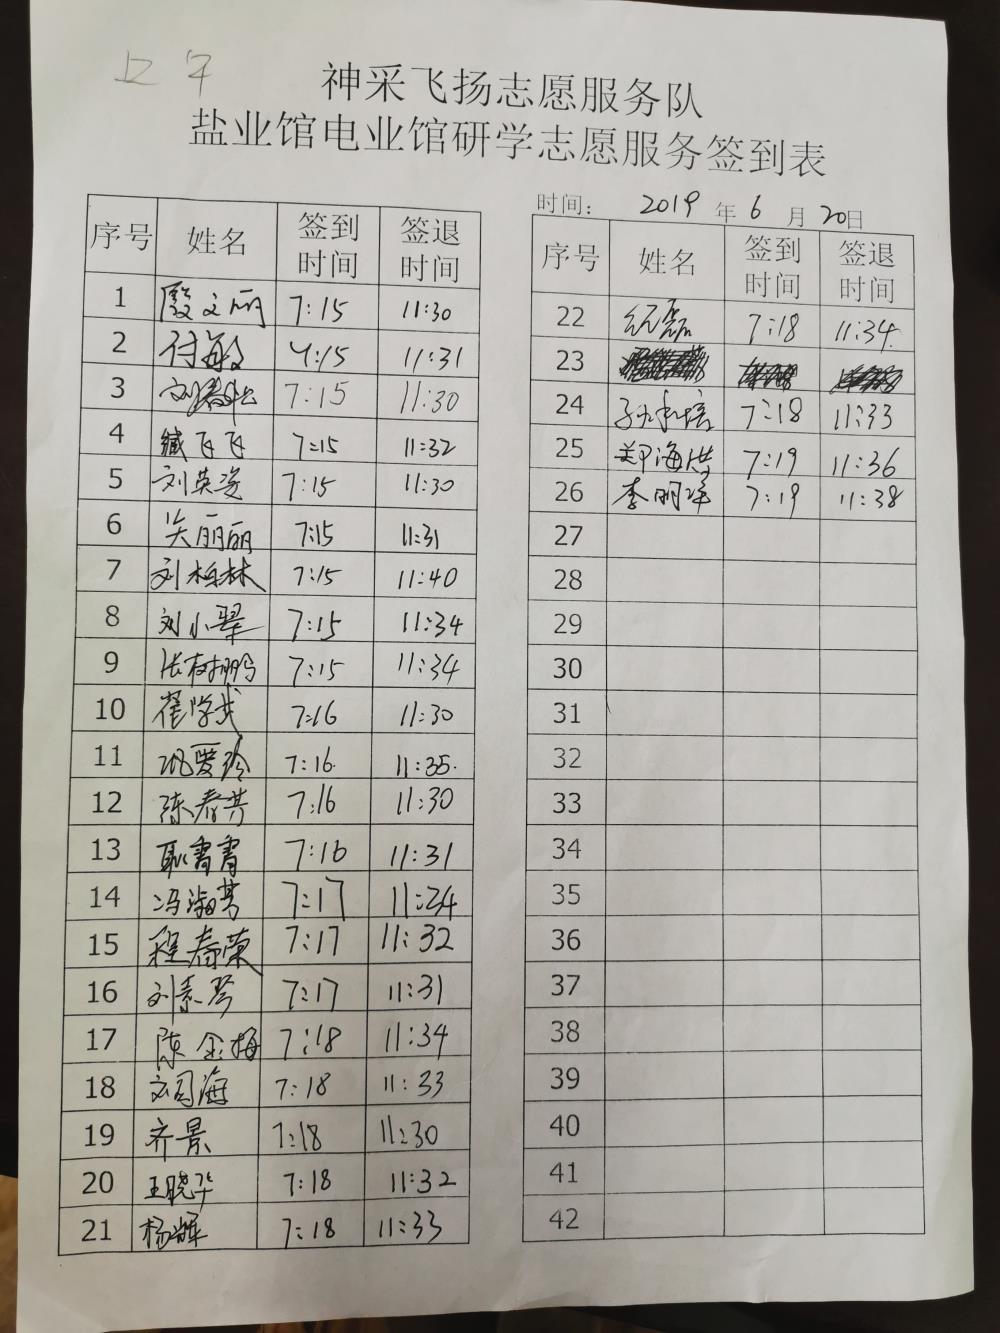 上午
神采飞扬志愿服务队
盐业馆电业馆研学志愿服务签到表
序号 姓名 签到时间 签退时间
1 殷文丽 7:15 11:30
2 付敏 7:15 11:31
3 7:15 11:30
4 臧飞飞 7:15 11:32
5 刘英姿 7:15 11:30
6 关丽丽 7:15 11:31
7 刘栢林 7:15 11:40
8 刘小翠 7:15 11:34
9 张树鹏 7:15 11:34
10 翟学武 7:16 11:30
11 巩爱玲 7:16 11:35
12 陈春芳 7:16 11:30
13 耿霄霄 7:16 11:31
14 冯淑芳 7:17 11:34
15 程春荣 7:17 11:32
16 刘素琴 7:17 11:31
17 陈金梅 7:18 11:34
18 刘同海 7:18 11:33
19 齐景 7:18 11:30
20 王晓华 7:18 11:32
21 杨辉 7:18 11:33
时间： 2019 年 6 月 20日
序号 姓名 签到时间 签退时间
22 纪磊 7:18 11:34
23
24 孙永培 7:18 11:33
25 郑海洪 7:19 11:36
26 李明泽 7:19 11:38
27
28
29
30
31
32
33
34
35
36
37
38
39
40
41
42